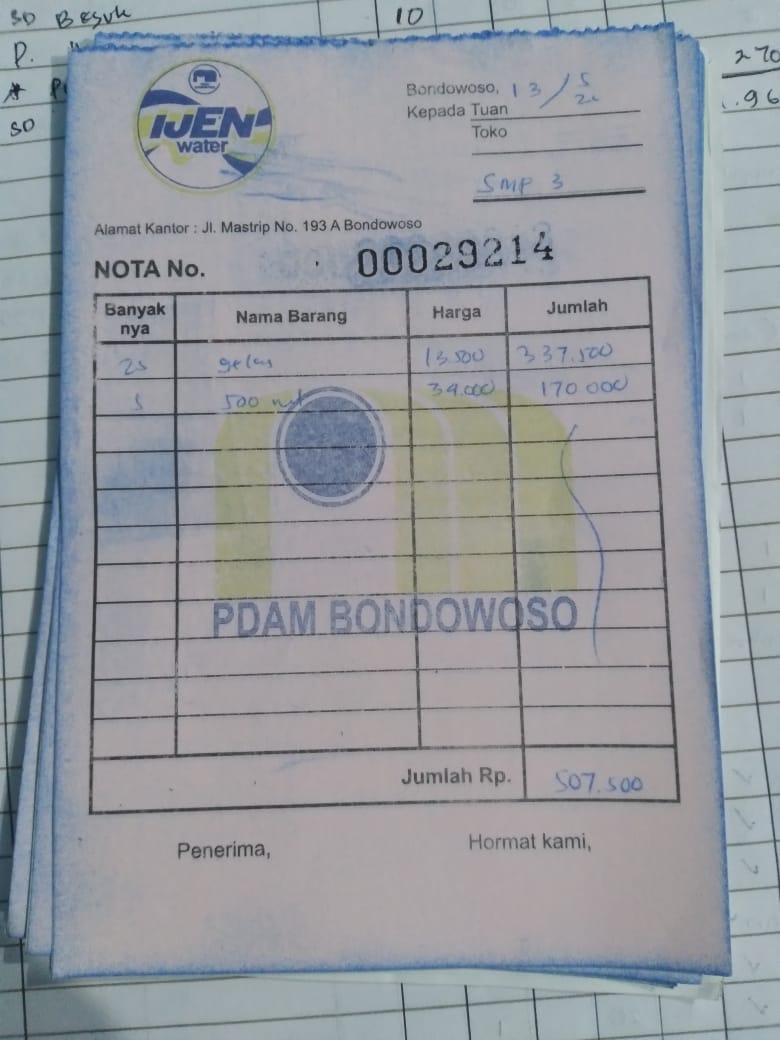 SD Besuk 10
P.
270
SD
IJEN
water
Bondowoso, 13/5
Kepada Tuan
Toko
SMP 3
Alamat Kantor : Jl. Mastrip No. 193 A Bondowoso
NOTA No. 00029214
Banyak nya Nama Barang Harga Jumlah
25 gelas 13.500 337.500
5 500 34.000 170 000
PDAM BONDOWOSO
Jumlah Rp. 507.500
Penerima, Hormat kami,